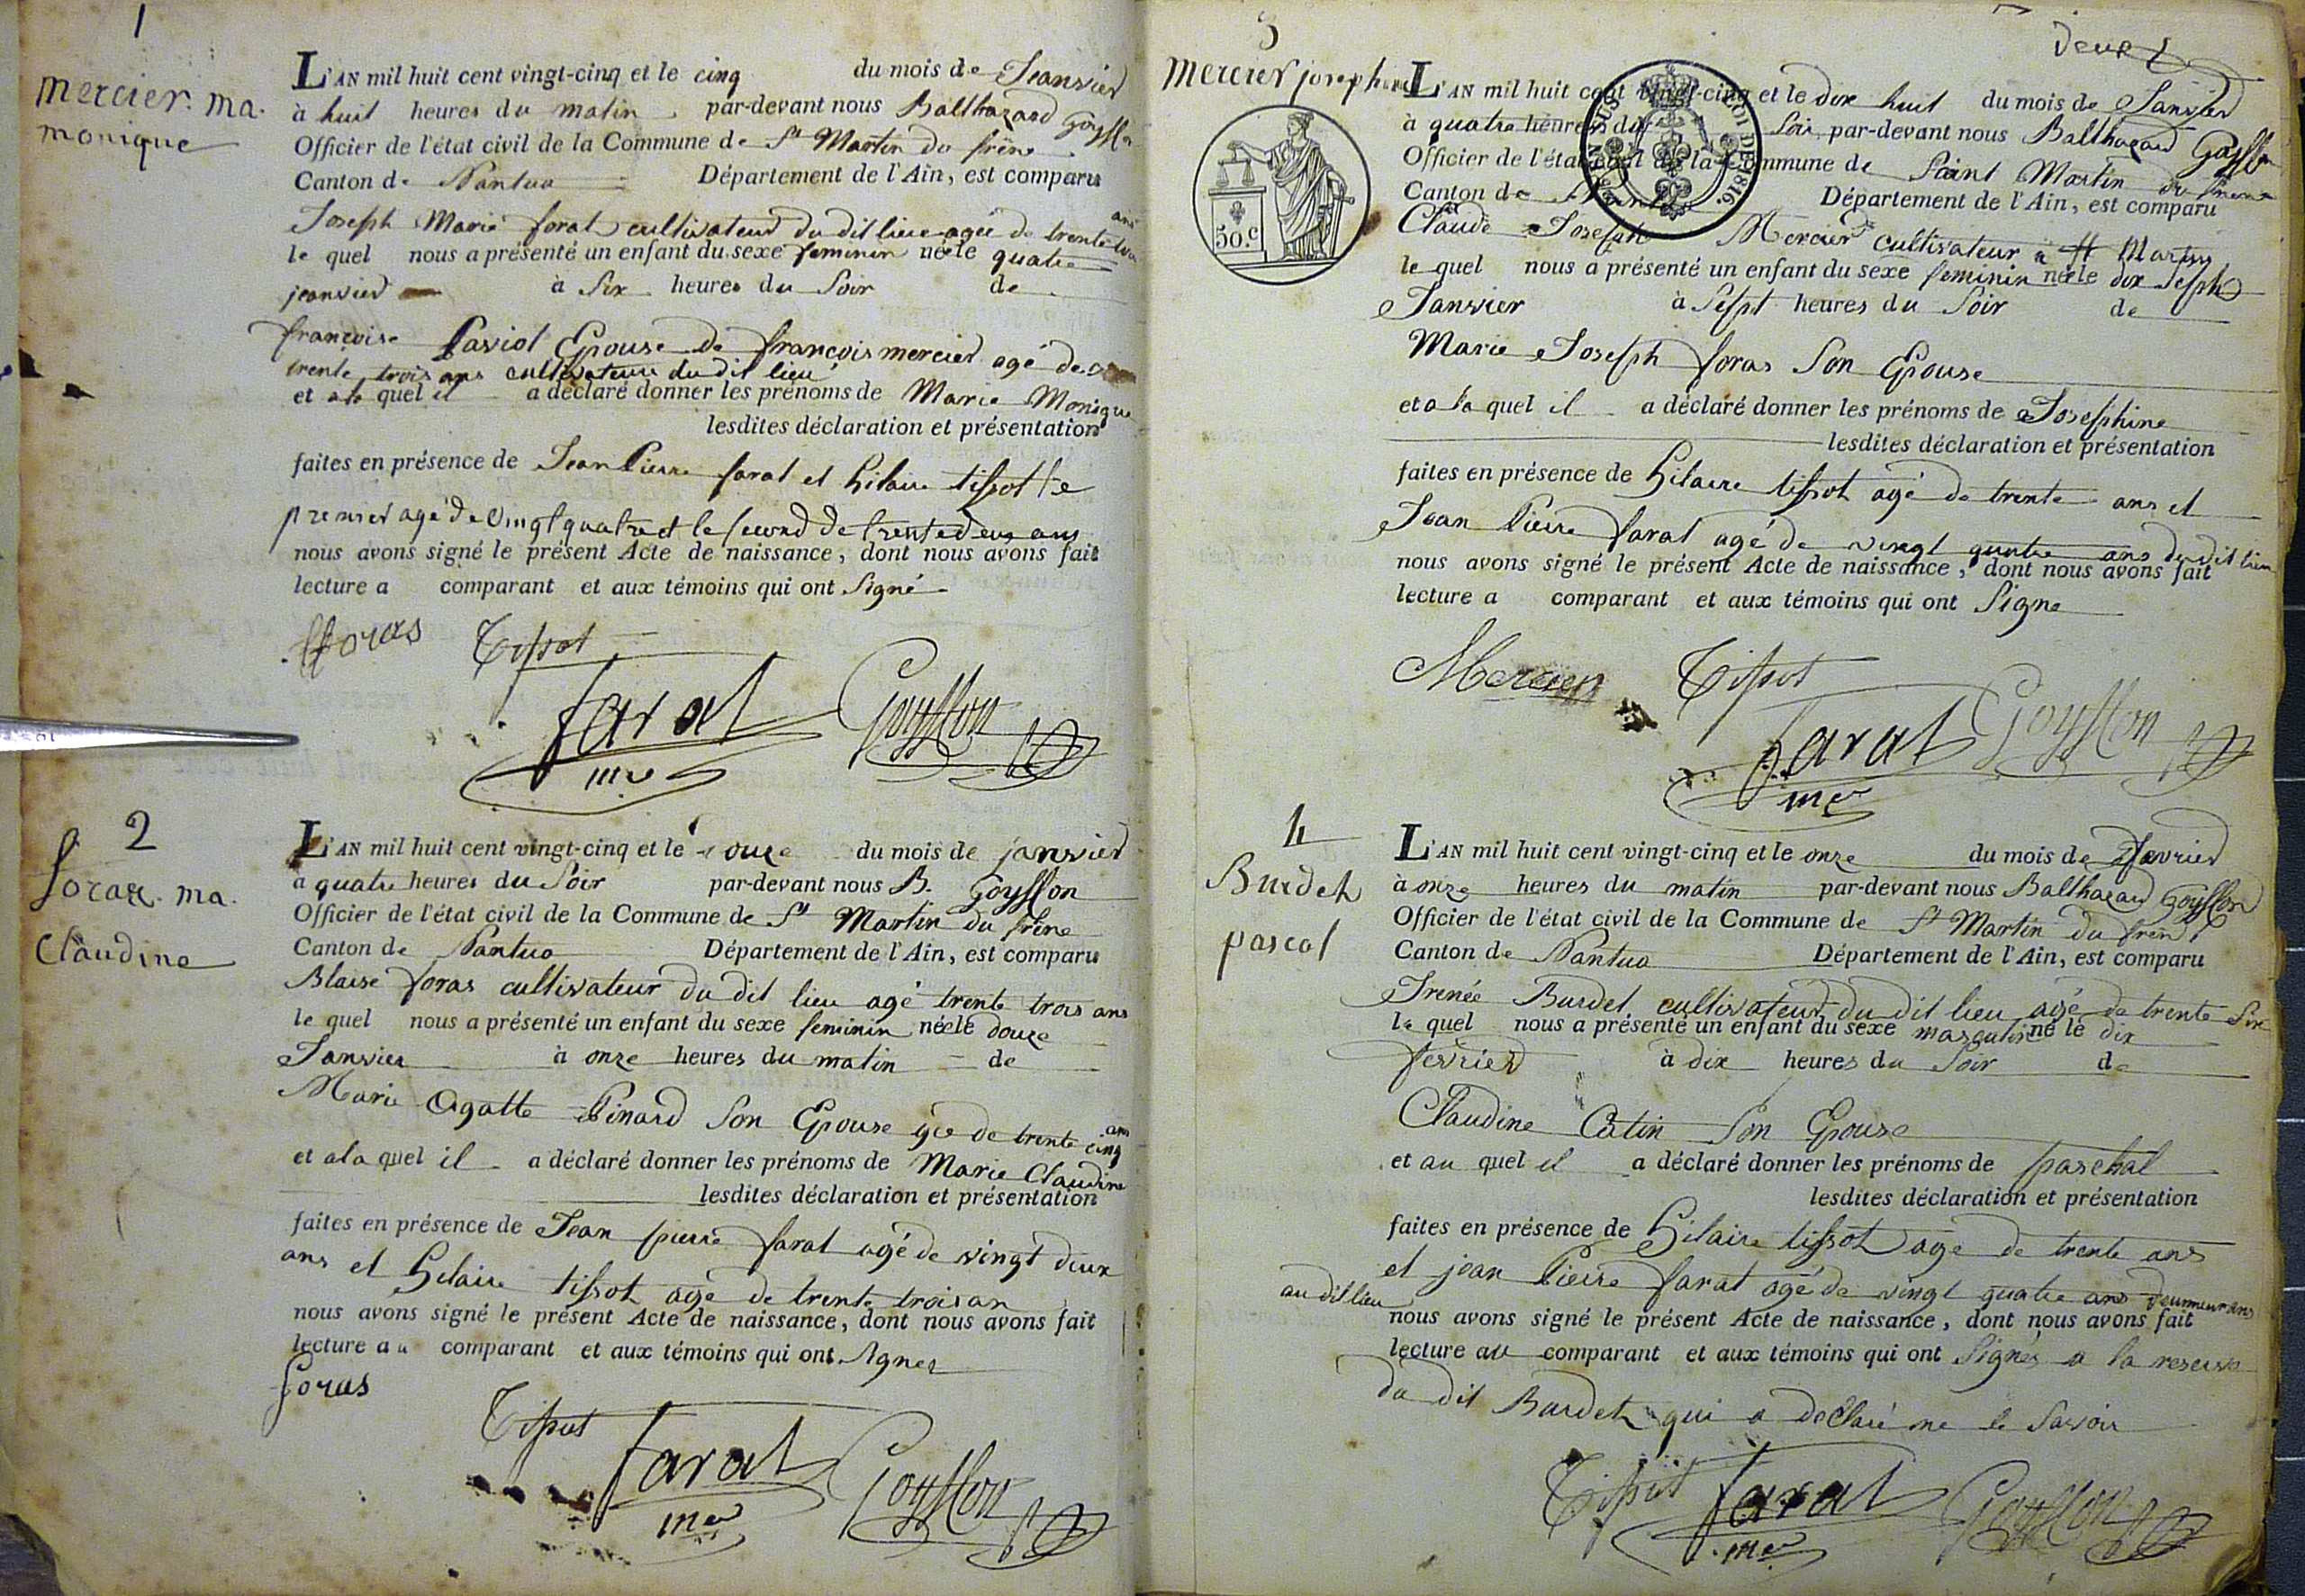 1
mercier. ma.
monique
L'AN mil huit cent vingt-cinq et le cinq du mois de Jeanvier
à huit heures du matin par-devant nous Balthazard Goyffon
Officier de l'état civil de la Commune de St Martin du frêne
Canton de Nantua Département de l'Ain, est comparu
Joseph Marie forat cultivateur du dit lieu agée de trente ans
le quel nous a présenté un enfant du sexe feminin née le quatre
jeanvier à Six heures du Soir de
françoise Epouse de françois mercier agé de
trente trois ans cultivateur du dit lieu
et a la quel il a déclaré donner les prénoms de Marie Monique
lesdites déclaration et présentation
faites en présence de Jean Pierre farat et hilaire tissot le
premier agé de vingt quatre et le second de trente deux ans
nous avons signé le présent Acte de naissance, dont nous avons fait
lecture a comparant et aux témoins qui ont Signé
fforas Tissot
farat Goyffon
me
2
foraz. ma.
Claudine
L'AN mil huit cent vingt-cinq et le douze du mois de janvier
a quatre heures du Soir par-devant nous B. Goyffon
Officier de l'état civil de la Commune de St Martin du frêne
Canton de Nantua Département de l'Ain, est comparu
Blaise foras cultivateur du dit lieu agé trente trois ans
le quel nous a présenté un enfant du sexe feminin née le douze
Janvier à onze heures du matin de
Marie Agatte Pinard Son Epouse gée de trente cinq ans
et a la quel il a déclaré donner les prénoms de Marie Claudine
lesdites déclaration et présentation
faites en présence de Jean pierre farat agé de vingt deux
ans et hilaire tissot agé de trente trois an
nous avons signé le présent Acte de naissance, dont nous avons fait
lecture au comparant et aux témoins qui ont Signer
foras
Tissot farat Goyffon
me
3
deux
mercier josephine
50.c
L'AN mil huit cent vingt-cinq et le dix huit du mois de Janvier
à quatre heures du Soir par-devant nous Balthazard Goyffon
Officier de l'état civil de la Commune de Saint Martin du frene
Canton de Nantua Département de l'Ain, est comparu
Claude Joseph Mercier cultivateur a St Martin
le quel nous a présenté un enfant du sexe feminin née le dix Sepht
Janvier à Sepht heures du Soir de
Marie Joseph foras Son Epouse
et a la quel il a déclaré donner les prénoms de Josephine
lesdites déclaration et présentation
faites en présence de hilaire tissot agé de trente ans et
Jean Pierre farat agé de vingt quatre ans du dit lieu
nous avons signé le présent Acte de naissance, dont nous avons fait
lecture a comparant et aux témoins qui ont Signe
Mercier Tissot
farat Goyffon
me
4
Burdet
pascal
L'AN mil huit cent vingt-cinq et le onze du mois de fevrier
à onze heures du matin par-devant nous Balthazard Goyffon
Officier de l'état civil de la Commune de St Martin du frene
Canton de Nantua Département de l'Ain, est comparu
Irenée Burdet cultivateur du dit lieu agé de trente Six
le quel nous a présenté un enfant du sexe masculin né le dix
fevrier à dix heures du Soir de
Claudine Catin Son Epouse
et au quel il a déclaré donner les prénoms de paschal
lesdites déclaration et présentation
faites en présence de hilaire tissot age de trente ans
et jean Pierre farat agé de vingt quatre ans
au dit lieu
nous avons signé le présent Acte de naissance, dont nous avons fait
lecture au comparant et aux témoins qui ont Signés a la reserve
du dit Burdet qui a declaré ne le Savoir
Tissot farat Goyffon
me